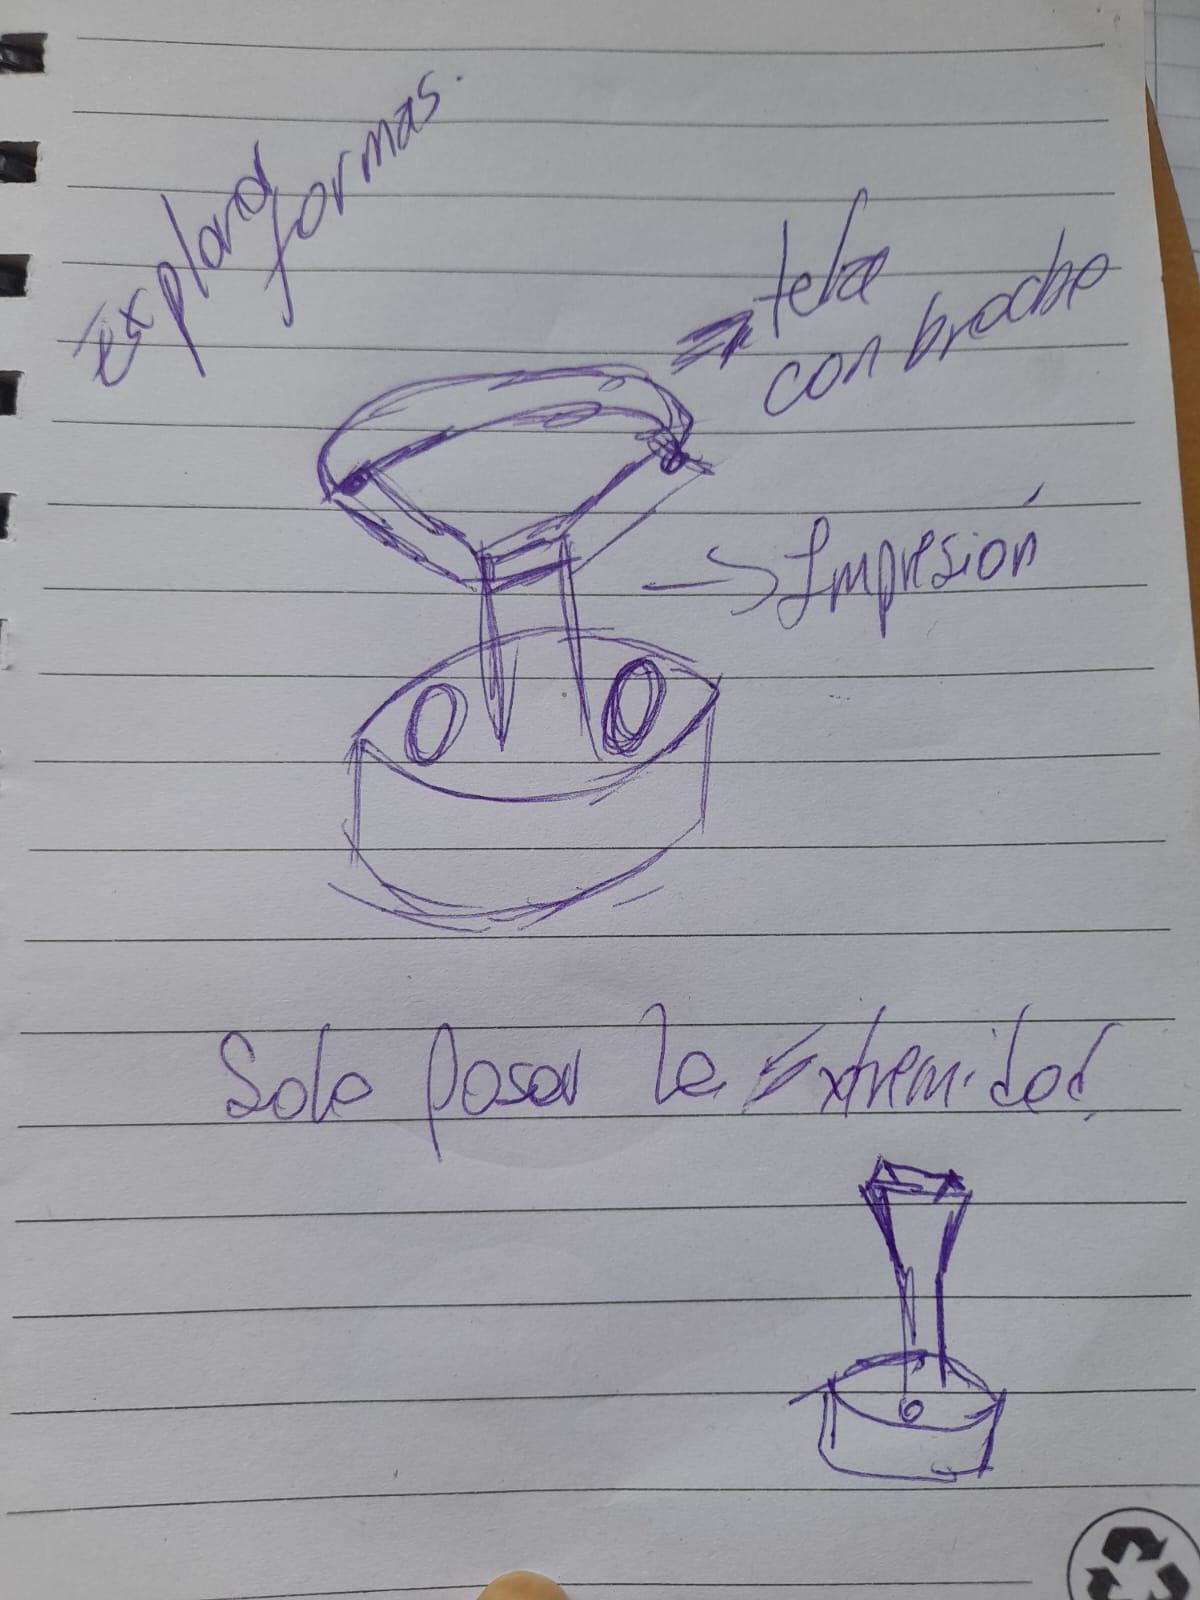 Explorar
formas.
tela
con broche
Impresión
Solo posar la Extremidad